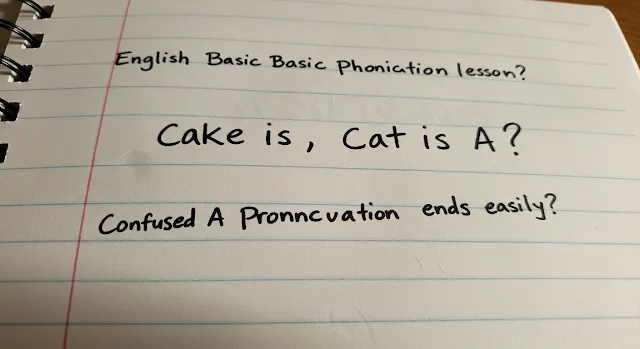 English Basic Basic Phoniation lesson?
Cake is, Cat is A?
Confused A Pronncvation ends easily?